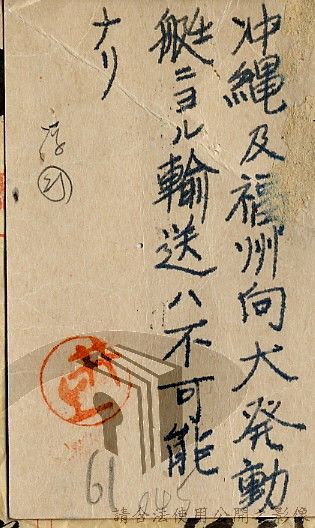 沖縄及福州向大発動
艇ニヨル輸送ハ不可能
ナリ
61
請合法使用公開之影像